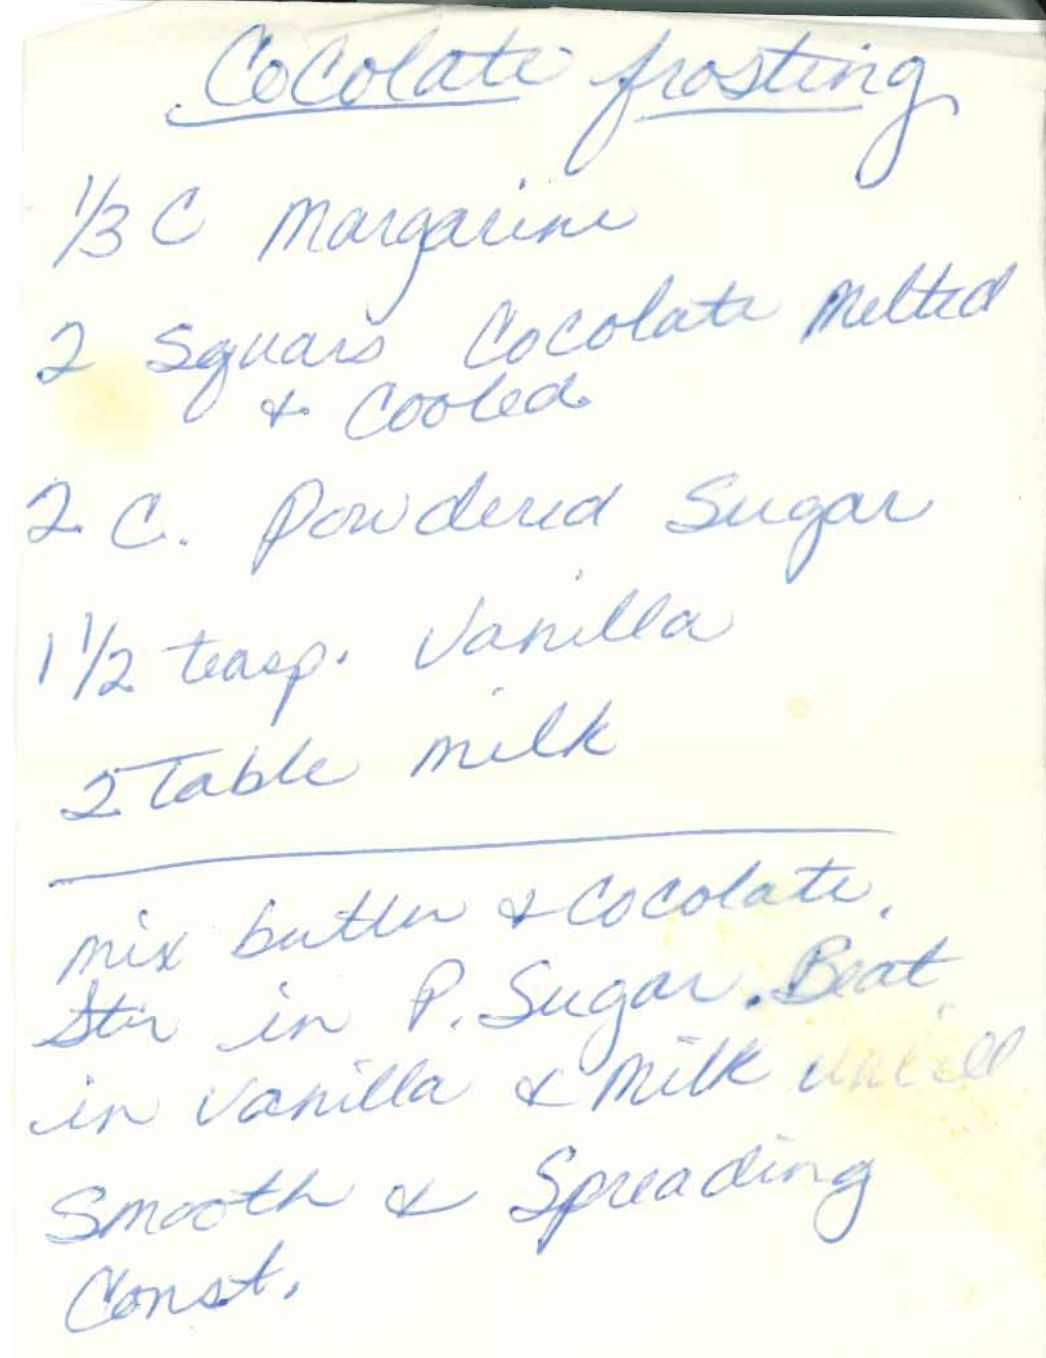 Cocolate frosting
1/3 C Margarine
2 Squars Cocolate Melted
& Cooled
2 C. Powdered Sugar
1 1/2 teasp. Vanilla
2 Table milk
mix butter & Cocolate.
Stir in P. Sugar. Beat
in Vanilla & Milk untill
Smooth & Spreading
Const.